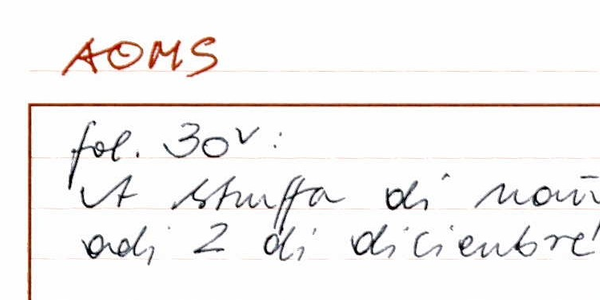 AOMS
fol. 30v:
A stuffa di
adi 2 di diciembre